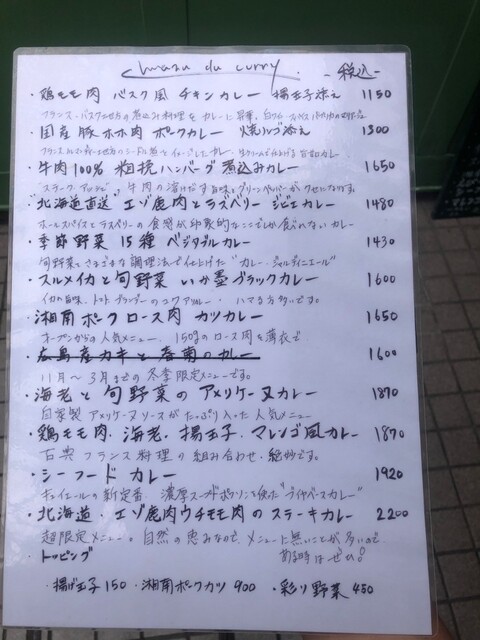 mazu du curry -税込-
・鶏モモ肉 バスク風 チキンカレー 揚玉子添え 1150
フランス・バスク地方の煮込み料理をカレーに昇華。
・国産豚ホホ肉 ポークカレー 焼リンゴ添え 1300
・牛肉100% 粗挽ハンバーグ煮込みカレー 1650
牛肉の溶けだす旨味とグリーンペッパーがクセになります
・北海道直送 エゾ鹿肉とラズベリー ジビエカレー 1480
ホールスパイスとラズベリーの食感が印象的なここでしか食べれないカレー
・季節野菜 15種 ベジタブルカレー 1430
旬野菜をさまざまな調理法で仕上げた"カレー・ジャルディニエール"
・スルメイカと旬野菜 いか墨ブラックカレー 1600
イカの旨味、トマト ハマる方多いです。
・湘南ポークロース肉 カツカレー 1650
オープンからの人気メニュー。150gのロース肉を薄衣で
・広島産カキと春菊のカレー 1600
11月〜3月までの冬季限定メニューです。
・海老と旬野菜のアメリケーヌカレー 1870
自家製アメリケーヌソースがたっぷり入った人気メニュー
・鶏モモ肉・海老・揚玉子・マレンゴ風カレー 1870
古典フランス料理の組み合わせ・絶妙です。
・シーフードカレー 1920
の新定番。濃厚スープドポワソンを使った"ブイヤベースカレー"
・北海道・エゾ鹿肉ウチモモ肉のステーキカレー 2200
超限定メニュー。自然の恵みなので、メニューに無いことが多いので
ある時はぜひ!
・トッピング
・揚げ玉子150 ・湘南ポークカツ 900 ・彩り野菜 450